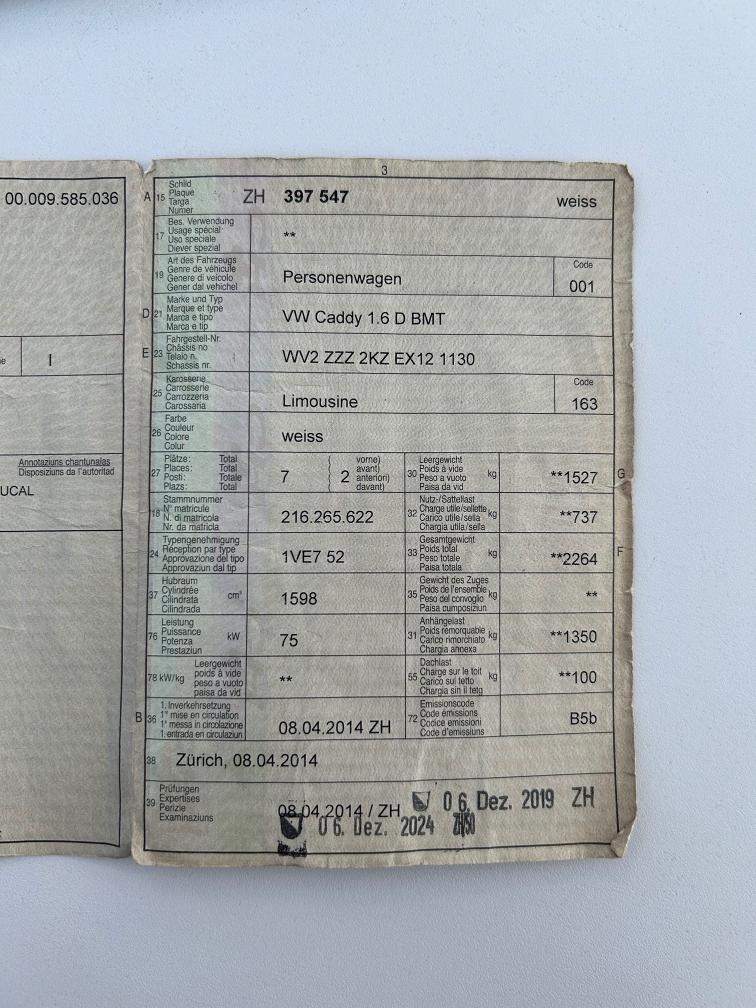 3
00.009.585.036
e I
Annotaziuns chantunalas
Disposiziuns da l'autoritad
UCAL
A 15 Schild
Plaque
Targa
Numer
ZH 397 547 weiss
17 Bes. Verwendung
Usage spécial
Uso speciale
Diever spezial
**
19 Art des Fahrzeugs
Genre de véhicule
Genere di veicolo
Gener dal vehichel
Personenwagen
Code
001
D 21 Marke und Typ
Marque et type
Marca e tipo
Marca e tip
VW Caddy 1.6 D BMT
E 23 Fahrgestell-Nr.
Châssis no
Telaio n.
Schassis nr.
WV2 ZZZ 2KZ EX12 1130
25 Karosserie
Carrosserie
Carrozzeria
Carossaria
Limousine
Code
163
26 Farbe
Couleur
Colore
Colur
weiss
27 Plätze: Total
Places: Total
Posti: Totale
Plazs: Total
7
2
vorne)
avant)
anteriori)
davant)
30 Leergewicht
Poids à vide
Peso a vuoto
Paisa da vid
kg
**1527 G
18 Stammnummer
N° matricule
N. di matricola
Nr. da matricla
216.265.622
32 Nutz-/Sattellast
Charge utile/sellette
Carico utile/sella
Chargia utila/sella
kg
**737
24 Typengenehmigung
Réception par type
Approvazione del tipo
Approvaziun dal tip
1VE7 52
33 Gesamtgewicht
Poids total
Peso totale
Paisa totala
kg
**2264 F
37 Hubraum
Cylindrée
Cilindrata
Cilindrada
cm³
1598
35 Gewicht des Zuges
Poids de l'ensemble
Peso del convoglio
Paisa cumposiziun
kg
**
76 Leistung
Puissance
Potenza
Prestaziun
kW
75
31 Anhängelast
Poids remorquable
Carico rimorchiato
Chargia annexa
kg
**1350
78 kW/kg
Leergewicht
poids à vide
peso a vuoto
paisa da vid
**
55 Dachlast
Charge sur le toit
Carico sul tetto
Chargia sin il tetg
kg
**100
B 36 1. Inverkehrsetzung
1re mise en circulation
1a messa in circolazione
1. entrada en circulaziun
08.04.2014 ZH
72 Emissionscode
Code émissions
Codice emissioni
Code d'emissiuns
B5b
38 Zürich, 08.04.2014
39 Prüfungen
Expertises
Perizie
Examinaziuns
08.04.2014 / ZH
06. Dez. 2019 ZH
06. Dez. 2024